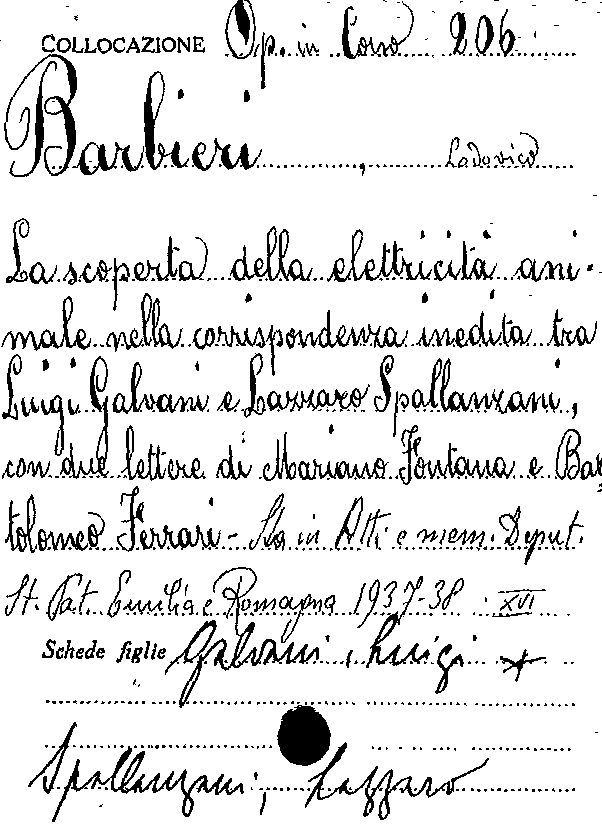 COLLOCAZIONE Op. in Corso 206
Barbieri, Lodovico
La scoperta della elettricità ani-
male nella corrispondenza inedita tra
Luigi Galvani e Lazzaro Spallanzani,
con due lettere di Mariano Fontana e Bar
tolomeo Ferrari - Sta in Atti e mem. Deput.
St. Pat. Emilia e Romagna 1937-38 - XVI
Schede figlie Galvani, Luigi
Spallanzani, Lazzaro